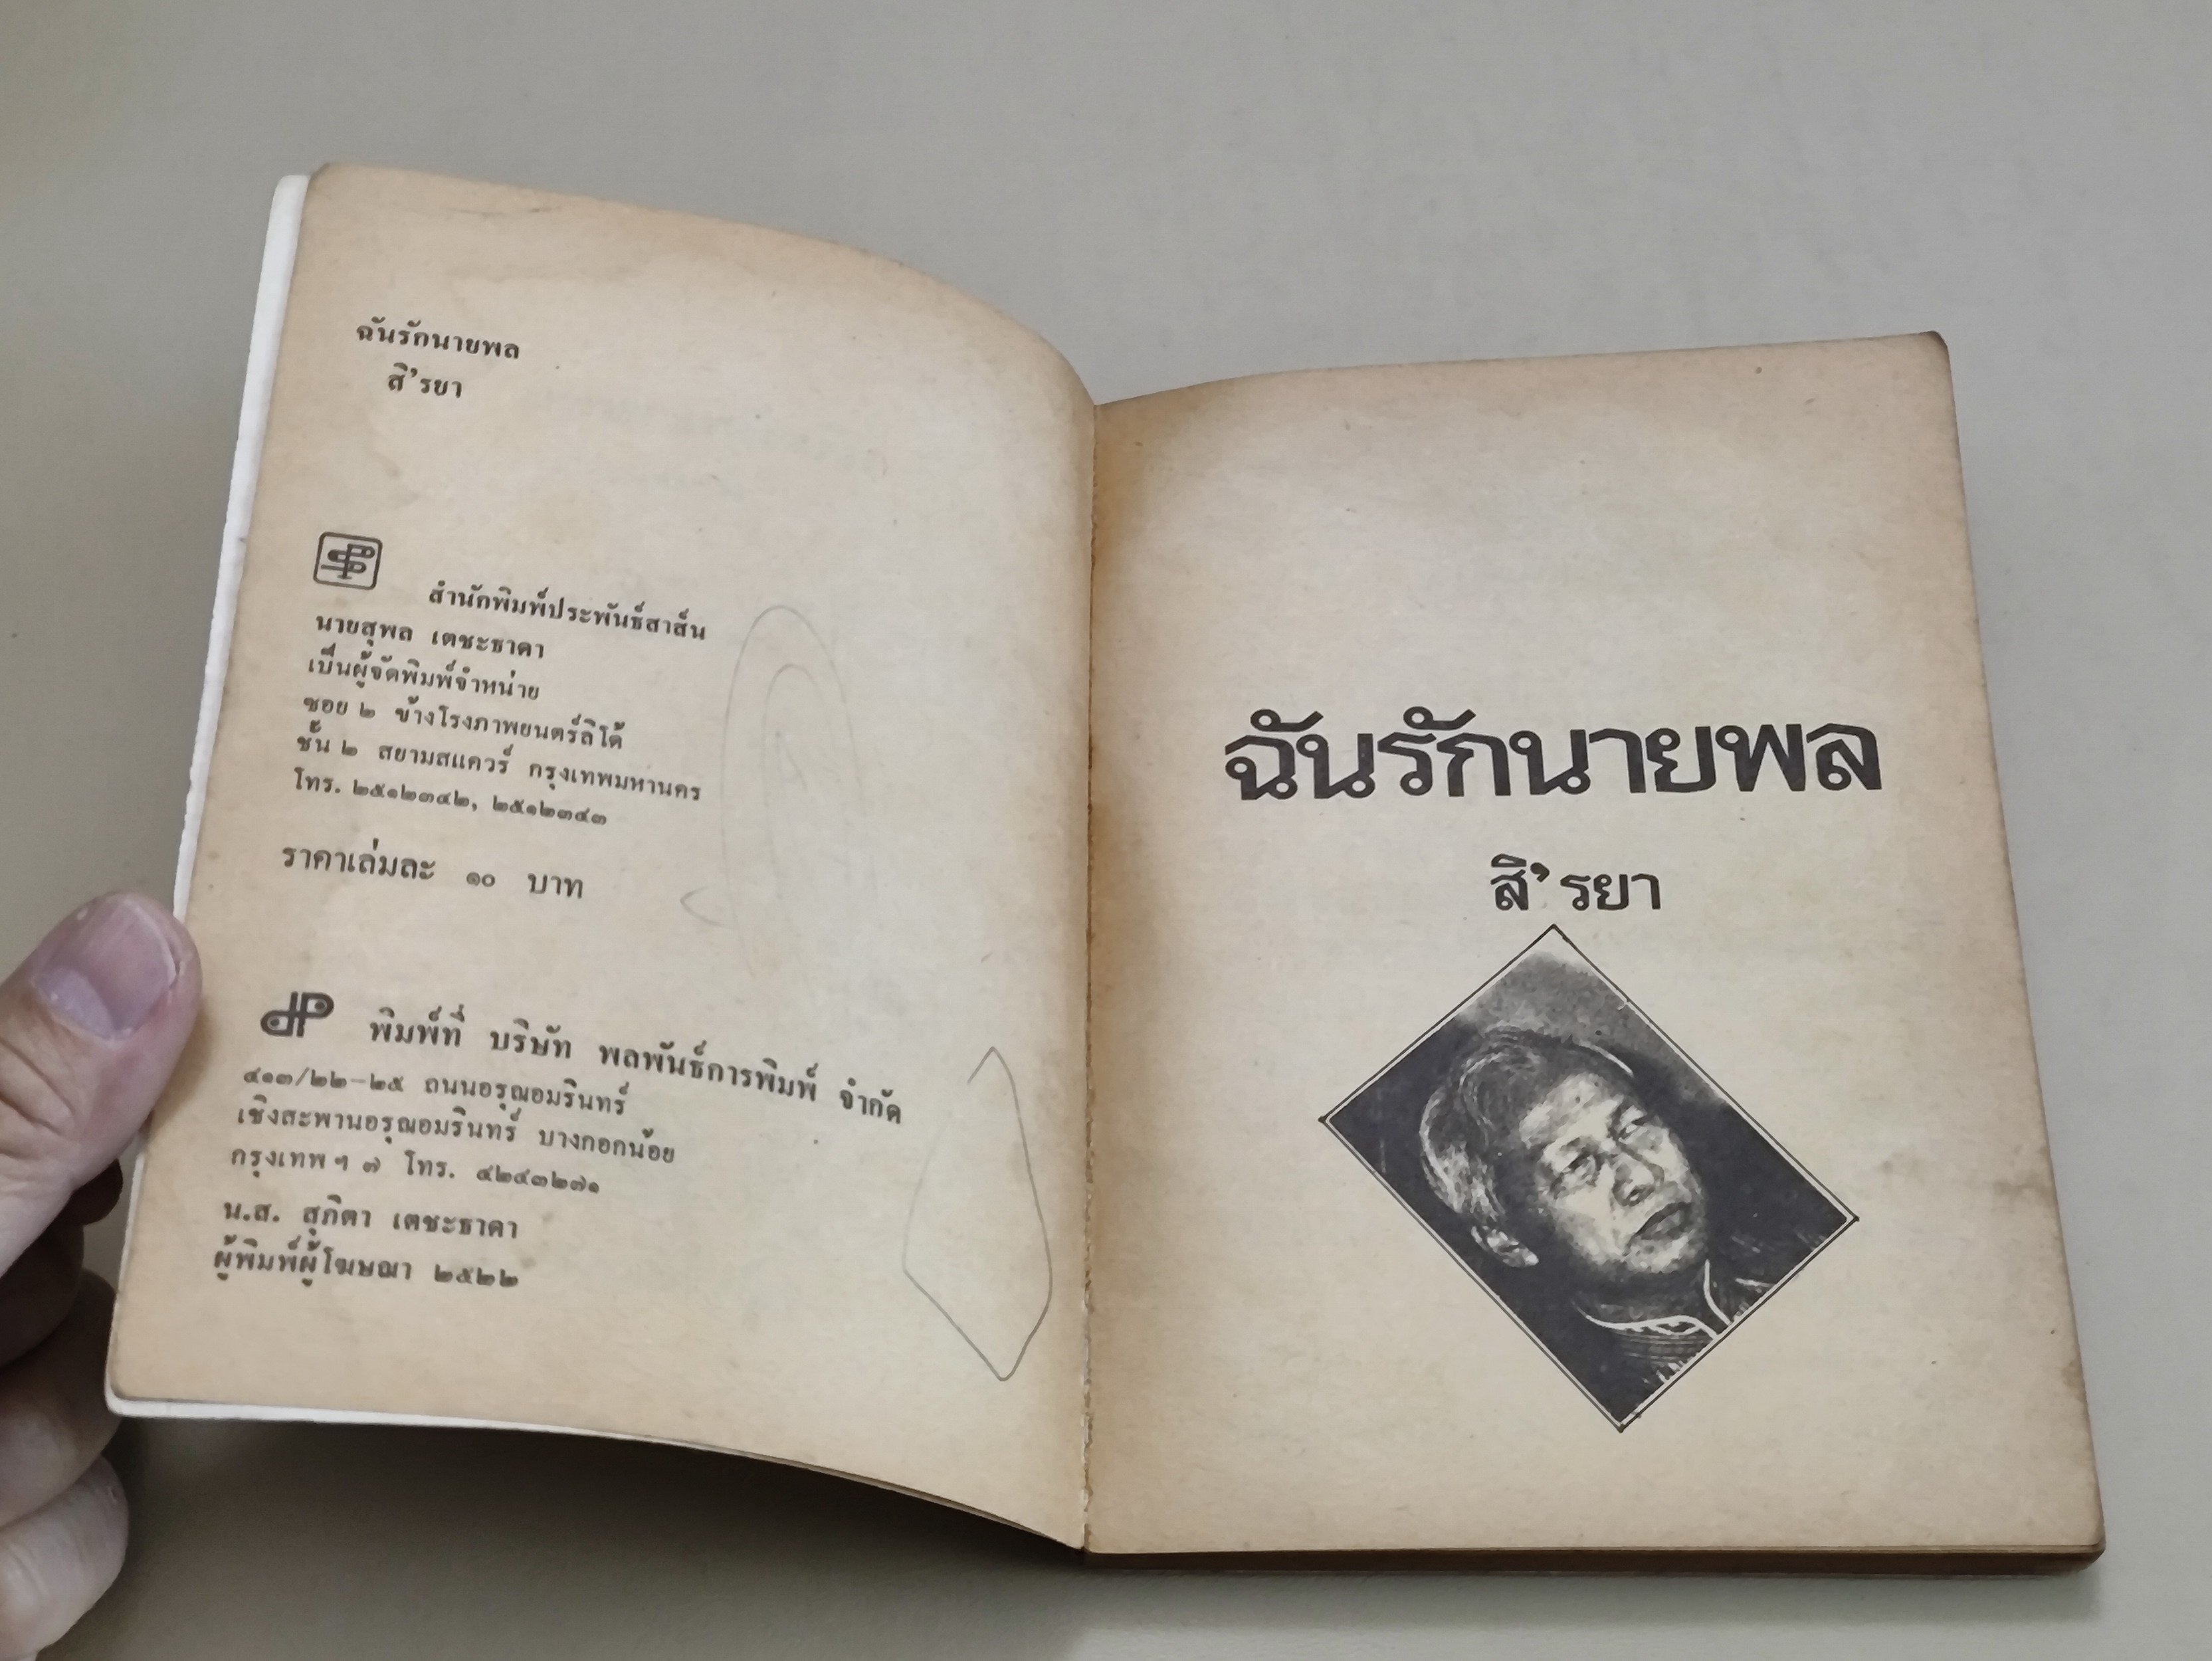 ฉันรักนายพล
สิ’รยา
สำนักพิมพ์ประพันธ์สาส์น
นายสุพล เตชะธาดา
เป็นผู้จัดพิมพ์จำหน่าย
ซอย ๒ ข้างโรงภาพยนตร์ลิโด้
ชั้น ๒ สยามสแควร์ กรุงเทพมหานคร
โทร. ๒๕๑๒๓๔๒, ๒๕๑๒๓๔๓
ราคาเล่มละ ๑๐ บาท
พิมพ์ที่ บริษัท พลพันธ์การพิมพ์ จำกัด
๔๑๓/๒๒-๒๕ ถนนอรุณอมรินทร์
เชิงสะพานอรุณอมรินทร์ บางกอกน้อย
กรุงเทพฯ ๗ โทร. ๔๒๔๓๒๗๑
น.ส. สุภิตา เตชะธาดา
ผู้พิมพ์ผู้โฆษณา ๒๕๒๒
ฉันรักนายพล
สิ’รยา